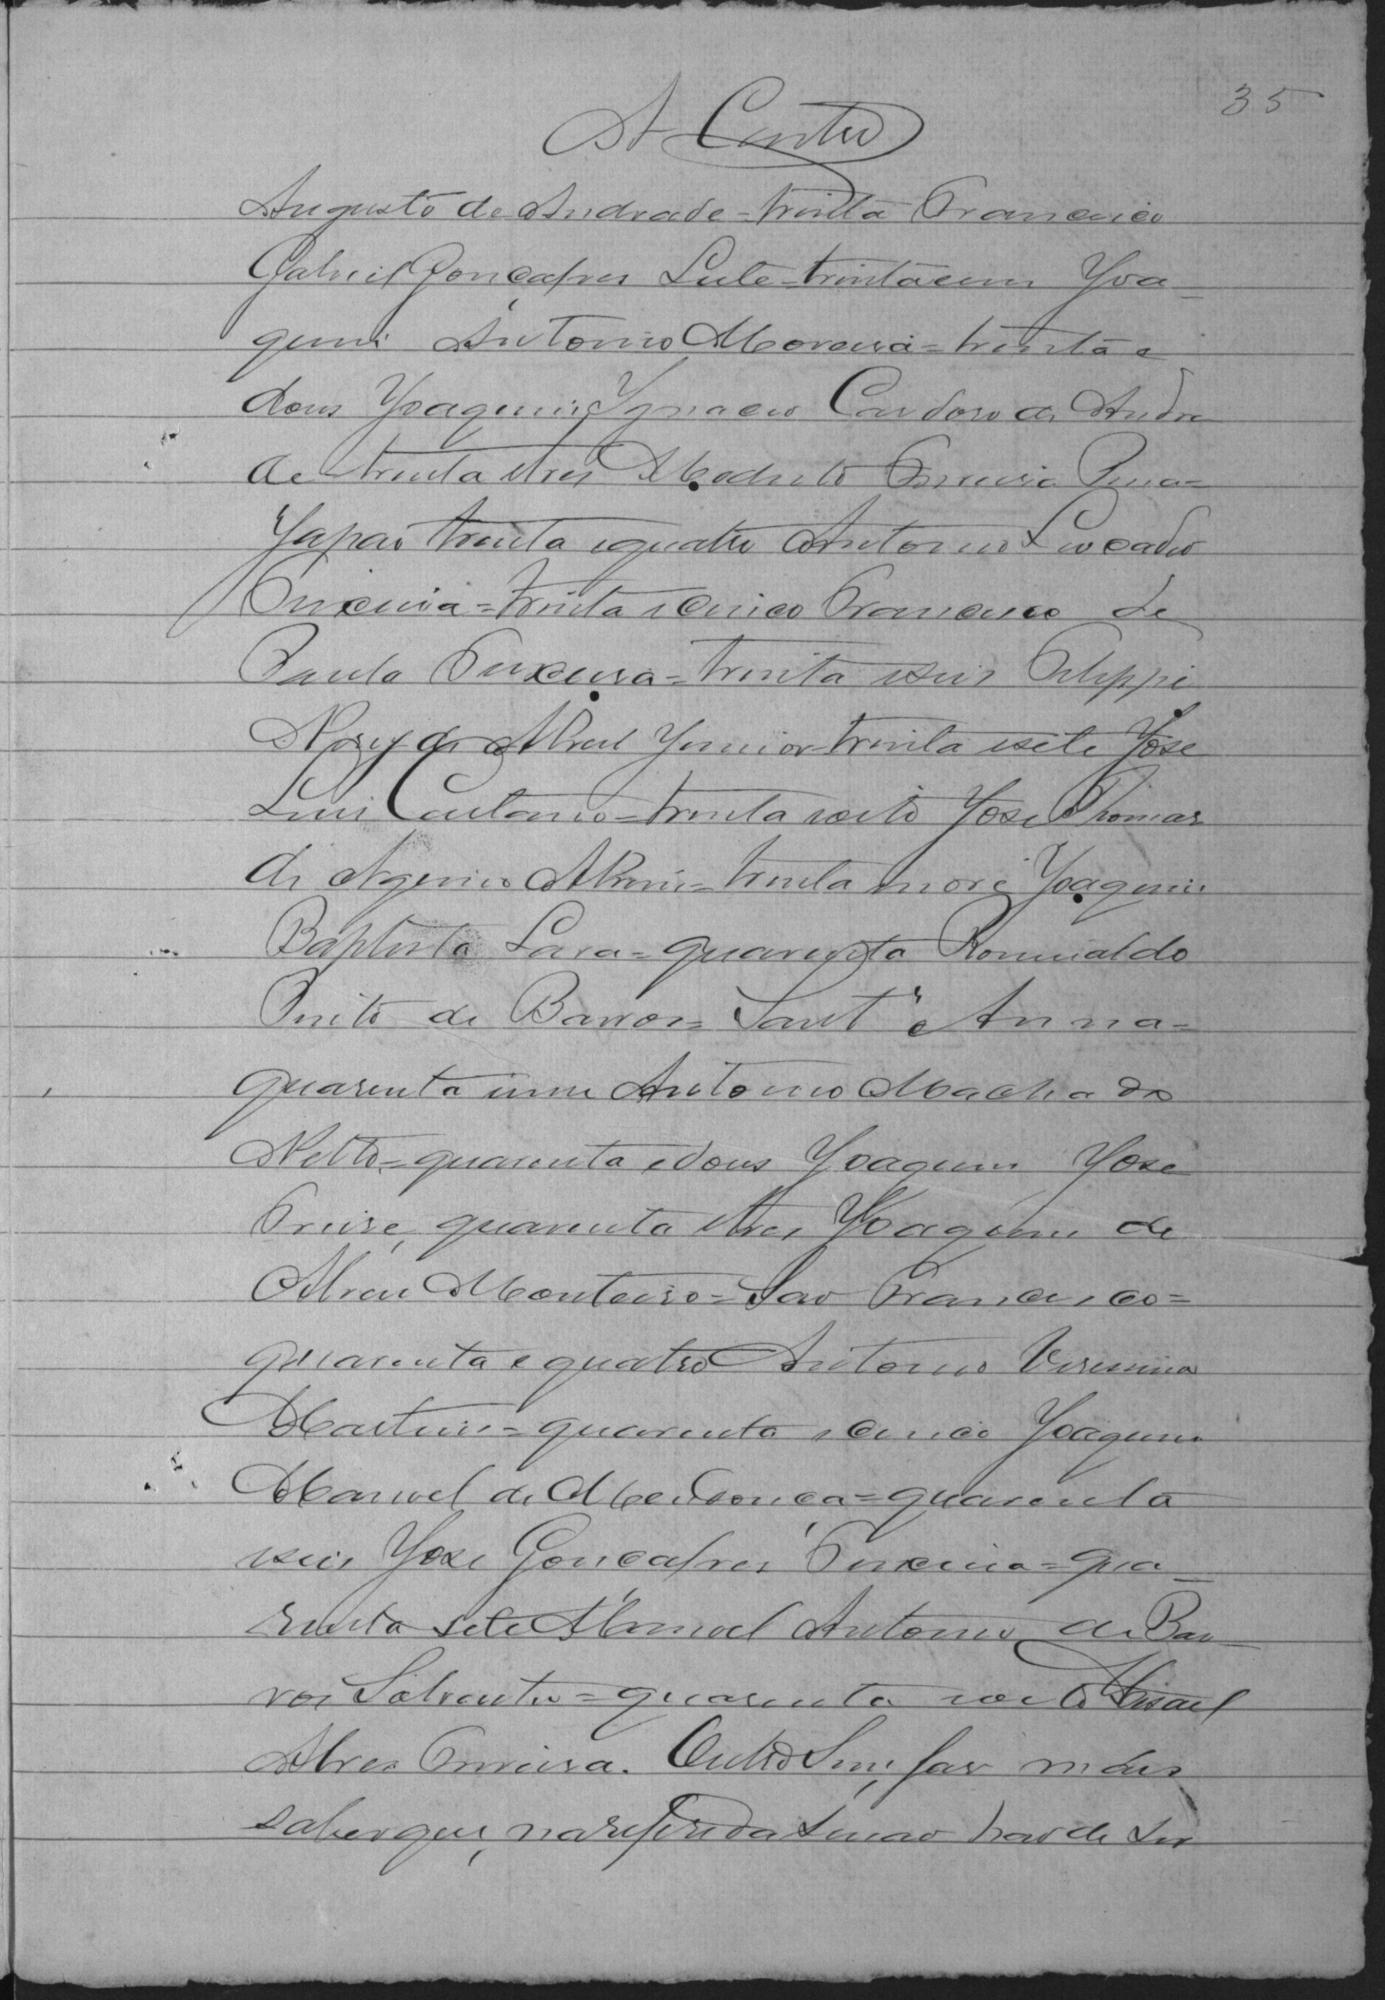 35
A Castro
Augusto de Andrade = trinta Francisco
Gabriel Gonçalves Leite = trinta e um Joa-
quim Antonio Moreira = trinta e
dous Joaquim Ignacio Cardoso de Andra
de trinta e tres Modesto Ferreira Pena =
Japão trinta e quatro Antonio Leocadio
Teixeira = trinta e cinco Francisco de
Paula Teixeira = trinta e seis Felippe
Nery de Abreu Junior = trinta e sete José
Luis Caetano = trinta e oito José Thomas
de Alves = trinta nove Joaquim
Baptista Lara = quarenta Romualdo
Pinto de Barros = Sant'Anna =
quarenta e um Antonio Machado
Netto = quarenta e dous Joaquim José
Freire, quarenta e tres Joaquim de
Abreu Monteiro = São Francisco =
quarenta e quatro Antonio
Martins = quarenta e cinco Joaquim
Manoel de Mendonça = quarenta
e seis José Gonçalves Teixeira = qua-
renta sete Manoel Antonio de Bar-
ros = quarenta e oito Misael
Alves Ferreira. Outro Sim, faz mais
saber que, na referida secção hão de ser